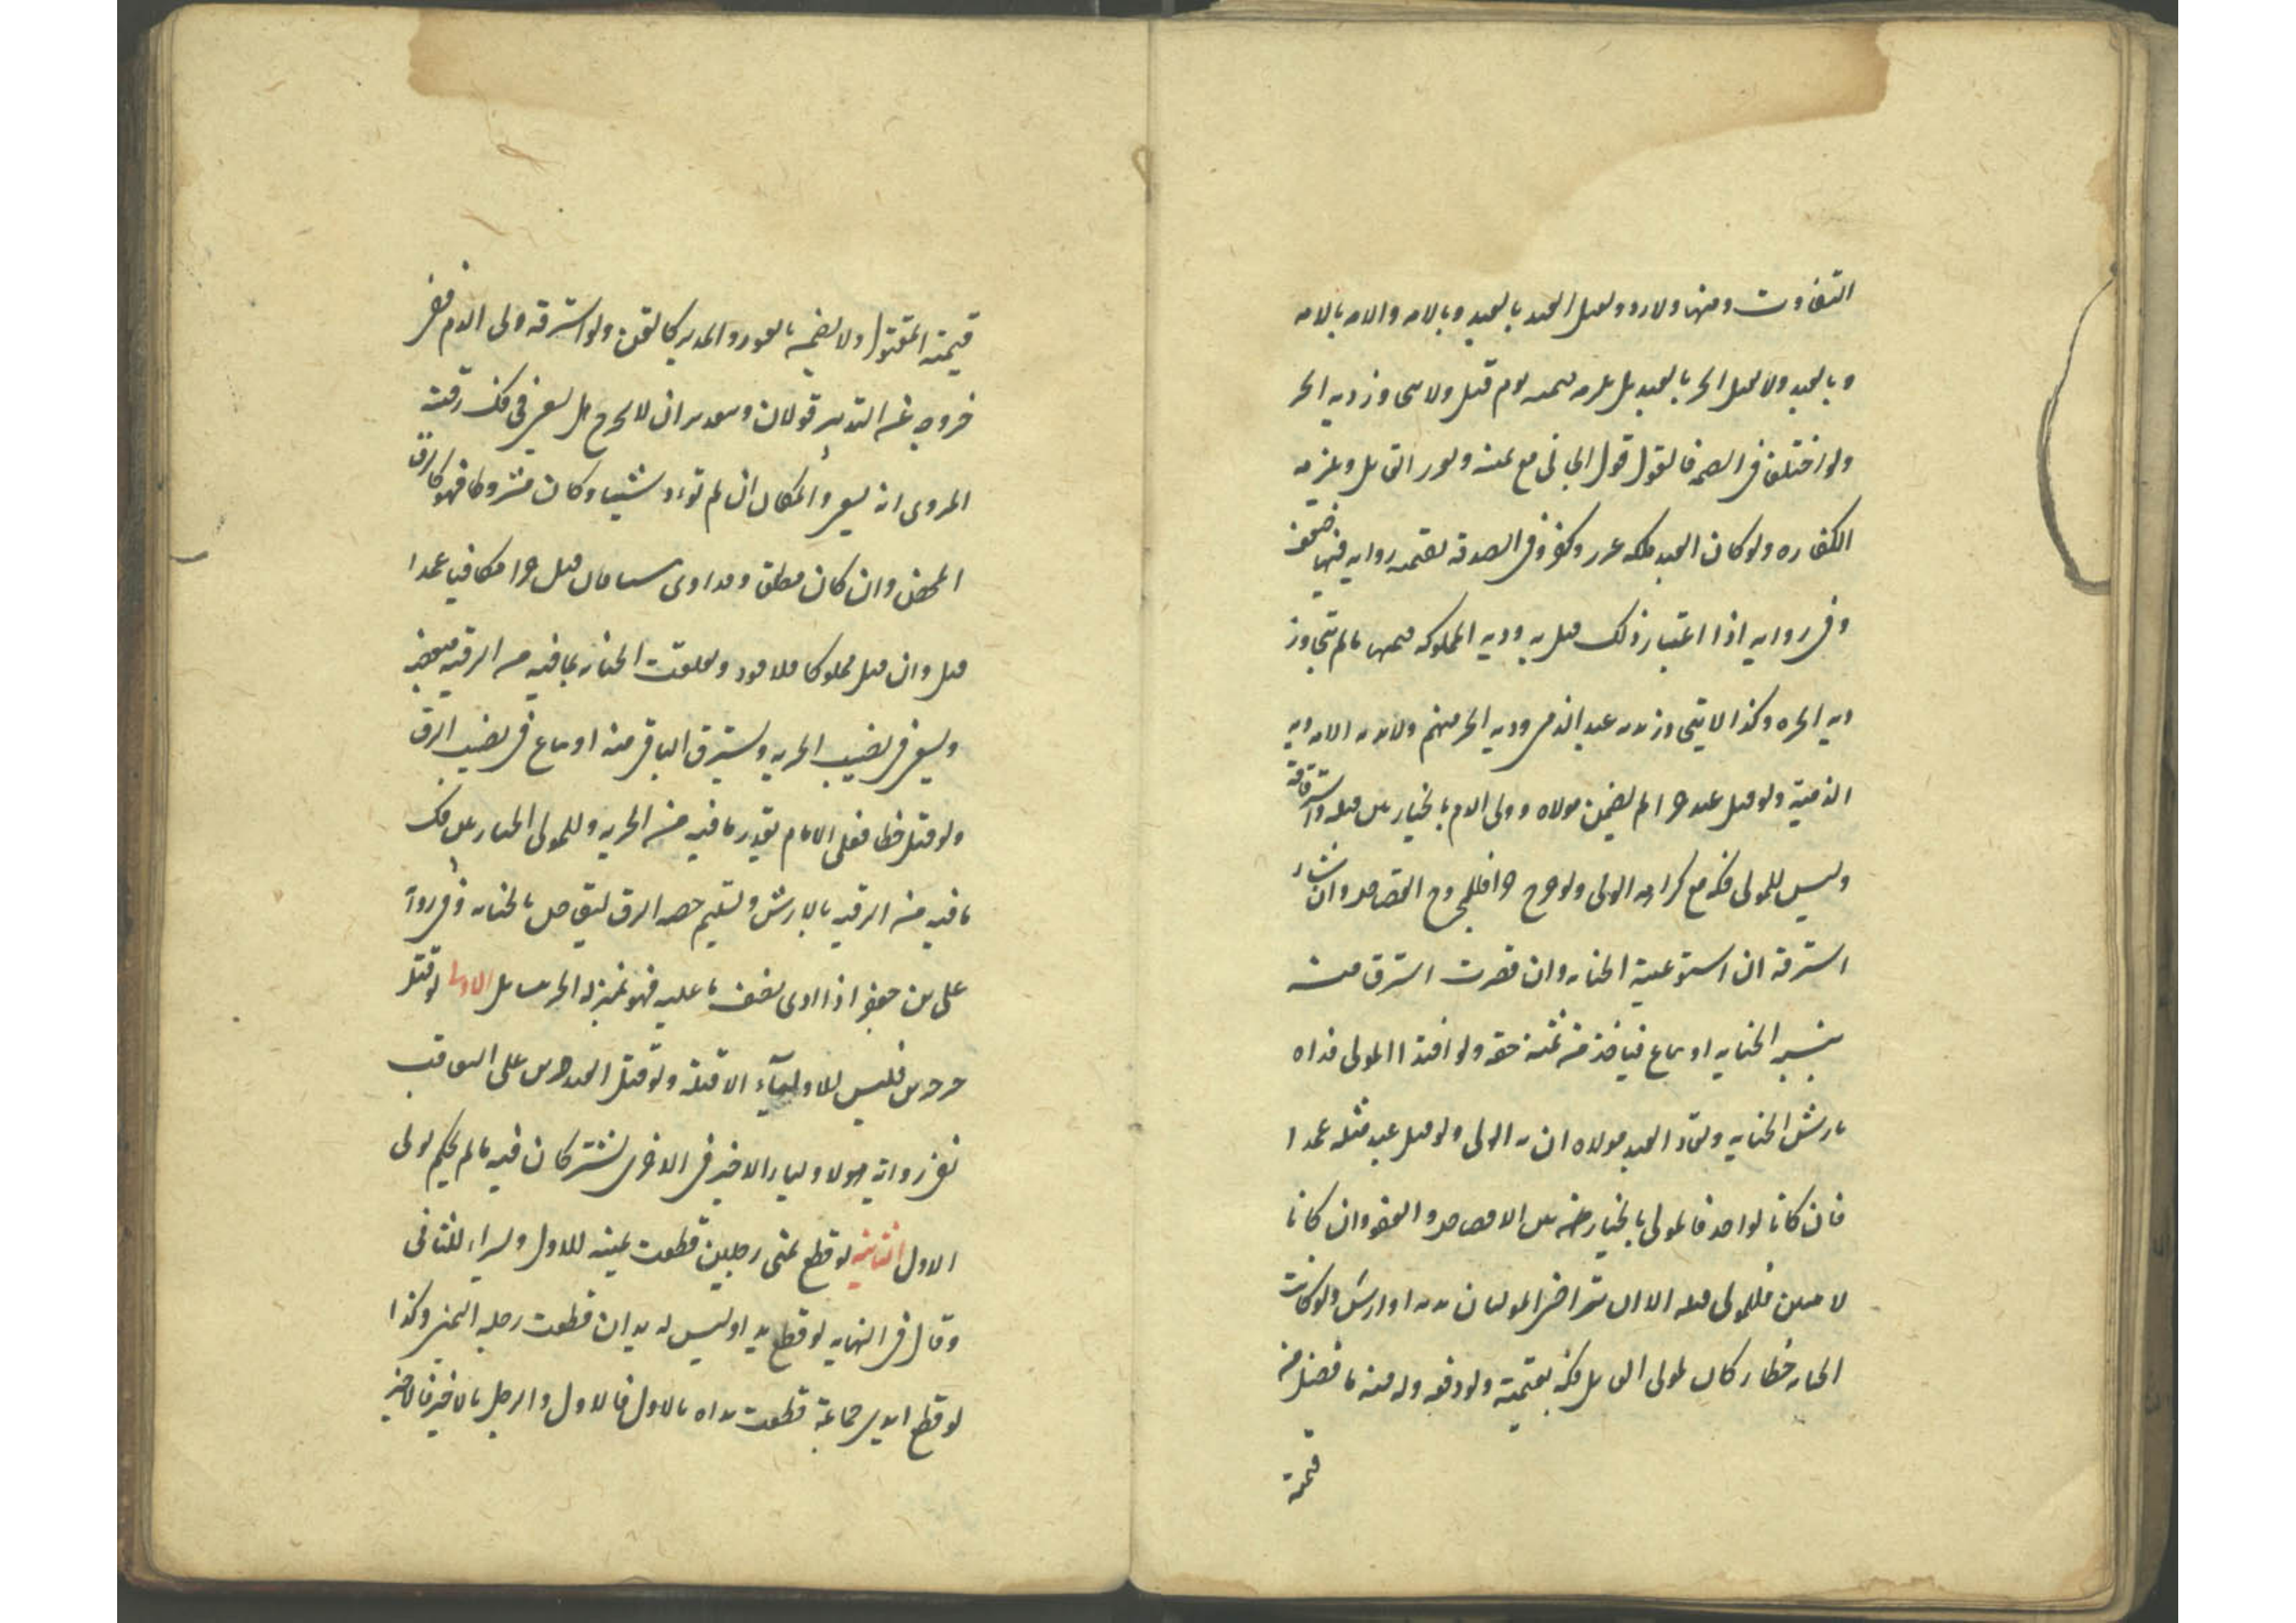 التفاوت ومنها ولا رد ويقتل العبد بالعبد وبالامه والامه بالامه
وبالعبد ولا يقتل الحر بالعبد بل يلزمه قيمته يوم قتل ولا يتجاوز ديه الحر
ولو اختلفا في القيمه فالقول قول الجاني مع يمينه ويعزر القاتل ويلزمه
الكفاره ولو كان العبد ملكه عزر وكفر وفي الصدقه بقيمته روايه فيها ضعف
وفي روايه اذا اعتاد ذلك قتل به وديه المملوك قيمته مالم يتجاوز
ديه الحره وكذا لا يتجاوز بديه عبد الذمي وديه الحر منهم ولا بديه الامه ديه
الذميه ولو قتل عبد حرا لم يضمن مولاه وولي الدم بالخيار بين قتله واسترقاقه
وليس للمولى فكه مع كراهيه الولي ولو جرح حرا فللمجروح القصاص وان شاء
استرقه ان استوعبته الجنايه وان قصرت استرق منه
بنسبه الجنايه او يباع فياخذ من ثمنه حقه ولو افتداه المولى فداه
بارش الجنايه ويقاد العبد لمولاه ان شاء الولي ولو قتل عبد مثله عمدا
فان كانا لواحد فالمولى بالخيار بين الاقتصاص والعفو وان كانا
لاثنين فللمولى قتله الا ان يتراضى الموليان بديه او ارش ولو كانت
الجنايه خطا كان لمولى القاتل فكه بقيمته ولو دفعه وله منه ما فضل من
قيمته
قيمته المقتول ولا يضمن ما يعوز والمدبر كالقن ولو استرقه ولي الدم ففي
خروجه عن التدبير قولان وبتقدير ان لا يخرج هل يسعى في فك رقبته
المروي انه يسعى والمكاتب ان لم يؤد شيئا وكان مشروطا فهو كالرق
المحض وان كان مطلقا وقد ادى شيئا فان قتل حرا مكافيا عمدا
قتل وان قتل مملوكا فلا قود وتعلقت الجنايه بما فيه من الرقيه مبعضه
ويسعى في نصيب الحريه ويسترق الباقي منه او يباع في نصيب الرق
ولو قتل خطا فعلى الامام بقدر ما فيه من الحريه وللمولى الخيار بين فك
ما فيه من الرقيه بالارش وتسليم حصه الرق ليقاص بالجنايه وفي رواية
علي بن جعفر اذا ادى نصف ما عليه فهو بمنزله الحر مسائل الاولى لو قتل
حر حرين فليس للاولياء الا قتله ولو قتل العبد حرين على التعاقب
ففي روايه هو لاولياء الاخير وفي الاخرى يشتركان فيه مالم يحكم لولي
الاول الثانيه لو قطع يمنى رجلين قطعت يمينه للاول ويسراه للثاني
وقال في النهايه لو قطع يدا وليس له يدان قطعت رجله اليمنى وكذا
لو قطع ايدي جماعة قطعت يداه بالاول فالاول والرجل بالاخير فالاخير